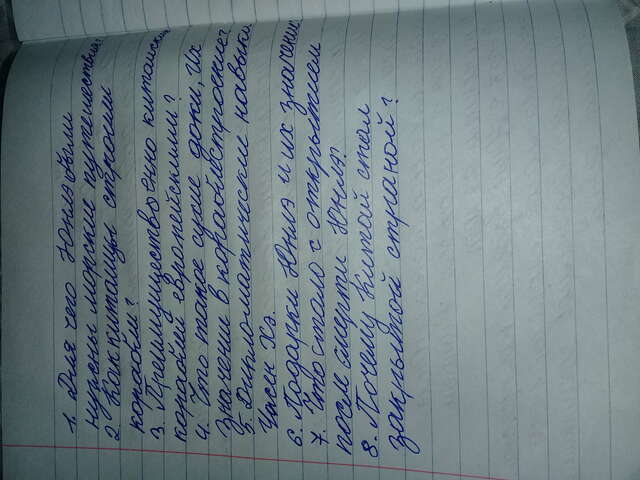 1. Для чего Юнлэ были
нужны морские путешествия?
2. Как китайцы строили
корабли?
3. Преимущественно китайских
кораблей европейскими?
4. Что такое сухие доки, Их
значении в кораблестроение?
5. Дипломатические навыки
Чжен Хэ.
6. Подарки Юнлэ и их значение.
7. Что стало с открытием
после смерти Юнлэ?
8. Почему Китай стал
закрытой страной?